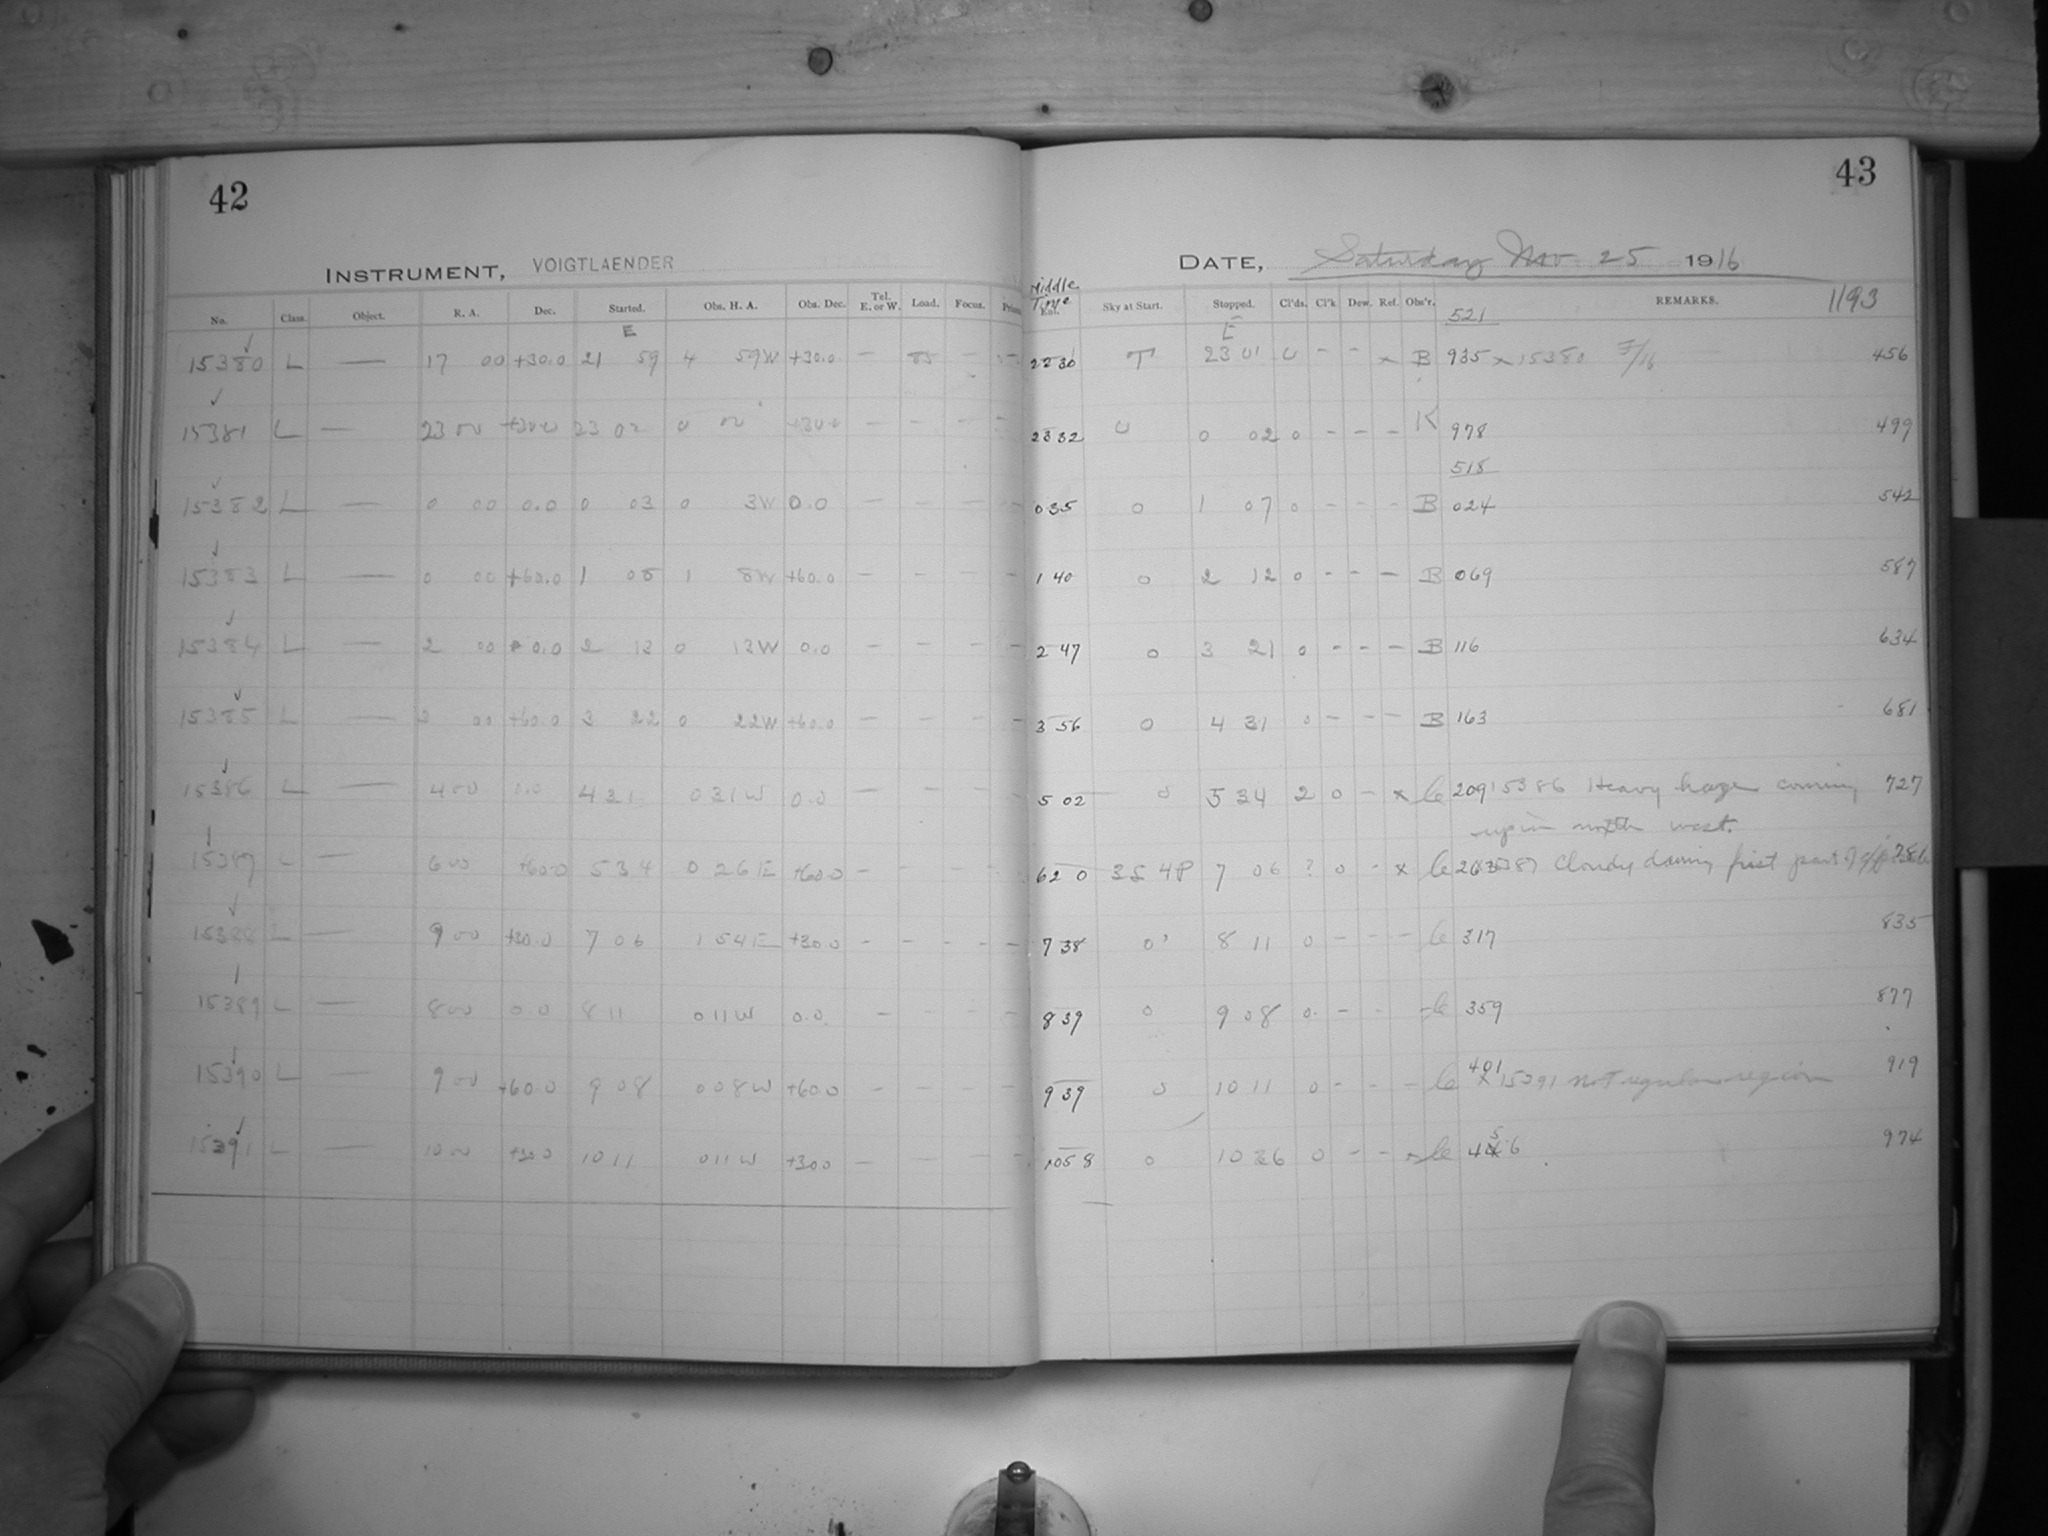 42
43
INSTRUMENT, VOIGTLAENDER
DATE, Saturday Nov. 25 1916
No. Class. Object. R. A. Dec. Started. Obs. H. A. Obs. Dec. Tel. E. or W. Load. Focus. Middle Time Sky at Start. Stopped. Cl'ds. Cl'k Dew. Ref. Obs'r. REMARKS. 1193
E E 521
15380 L — 17 00 +30.0 21 59 4 59W +30.0 — 85 — 22 30 T 23 01 0 - - x B 935 x 15380 456
15381 L — 23 00 +30.0 23 02 0 00 +30.0 — — — 23 32 0 0 02 0 - - - K 978 499
518
15382 L — 0 00 0.0 0 03 0 3W 0.0 — — — 0 35 0 1 07 0 - - - B 024 542
15383 L — 0 00 +60.0 1 08 1 8W +60.0 - - - - 1 40 0 2 12 0 - - - B 069 587
15384 L — 2 00 0.0 2 13 0 13W 0.0 — - - - 2 47 0 3 21 0 - - - B 116 634
15385 L — 3 00 +60.0 3 22 0 22W +60.0 — - - - 3 56 0 4 31 0 - - - B 163 681
15386 L — 4 00 0.0 4 31 0 31W 0.0 — — - - 5 02 0 5 34 2 0 - x C 209 15386 Heavy haze coming 727
up in north west.
15387 L — 6 00 +60.0 5 34 0 26E +60.0 - - - - 6 20 3S 4P 7 06 ? 0 - x C 15387 Cloudy during first part of
15388 L — 9 00 +30.0 7 06 1 54E +30.0 - - - - 7 38 0 8 11 0 - - - C 317 835
15389 L — 8 00 0.0 8 11 0 11W 0.0 — - - - 8 39 0 9 08 0 - - - C 359 877
15390 L — 9 00 +60.0 9 08 0 08W +60.0 - - - - 9 39 0 10 11 0 - - - C 401 x 15391 not regular region 919
15391 L — 10 00 +30.0 10 11 0 11W +30.0 — - - - 10 58 0 10 26 0 - - C 456 974